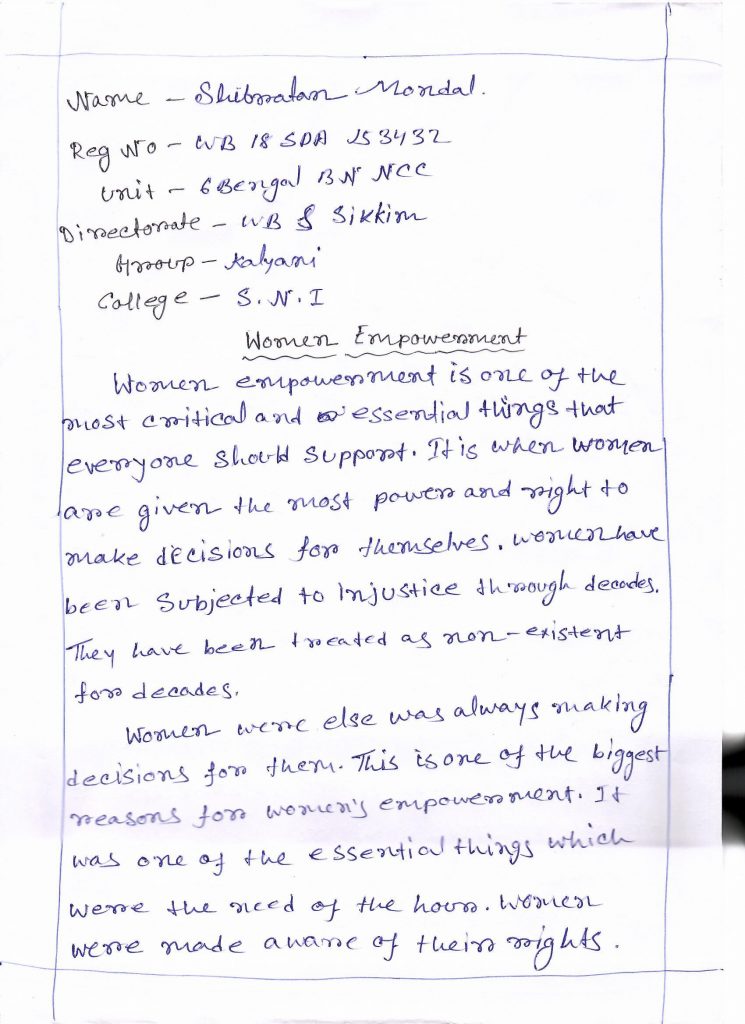 Name - Shibratan Mondal.
Reg No - WB 18 SDA 153432
Unit - 6 Bengal BN NCC
Directorate - WB & Sikkim
Group - Kalyani
College - S.N.I
Women Empowerment
Women empowerment is one of the
most critical and essential things that
everyone should support. It is when women
are given the most power and right to
make decisions for themselves. women have
been subjected to Injustice through decades.
They have been treated as non-existent
for decades.
Women were else was always making
decisions for them. This is one of the biggest
reasons for women's empowerment. It
was one of the essential things which
were the need of the hour. Women
were made aware of their rights.